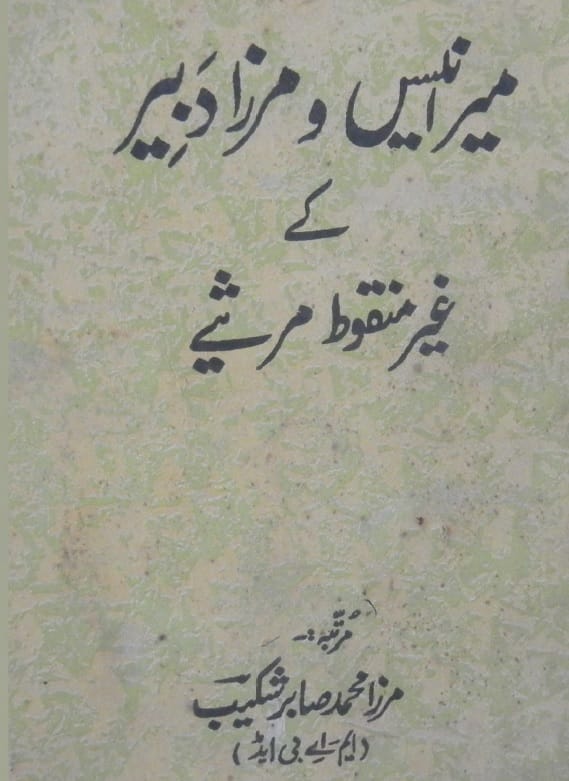 میر انیس و مرزا دَبِیر
کے
غیر منقوط مرثیے
مُرتّبہ:۔
مرزا محمد صابر شکیب
(ایم۔اے بی ایڈ)